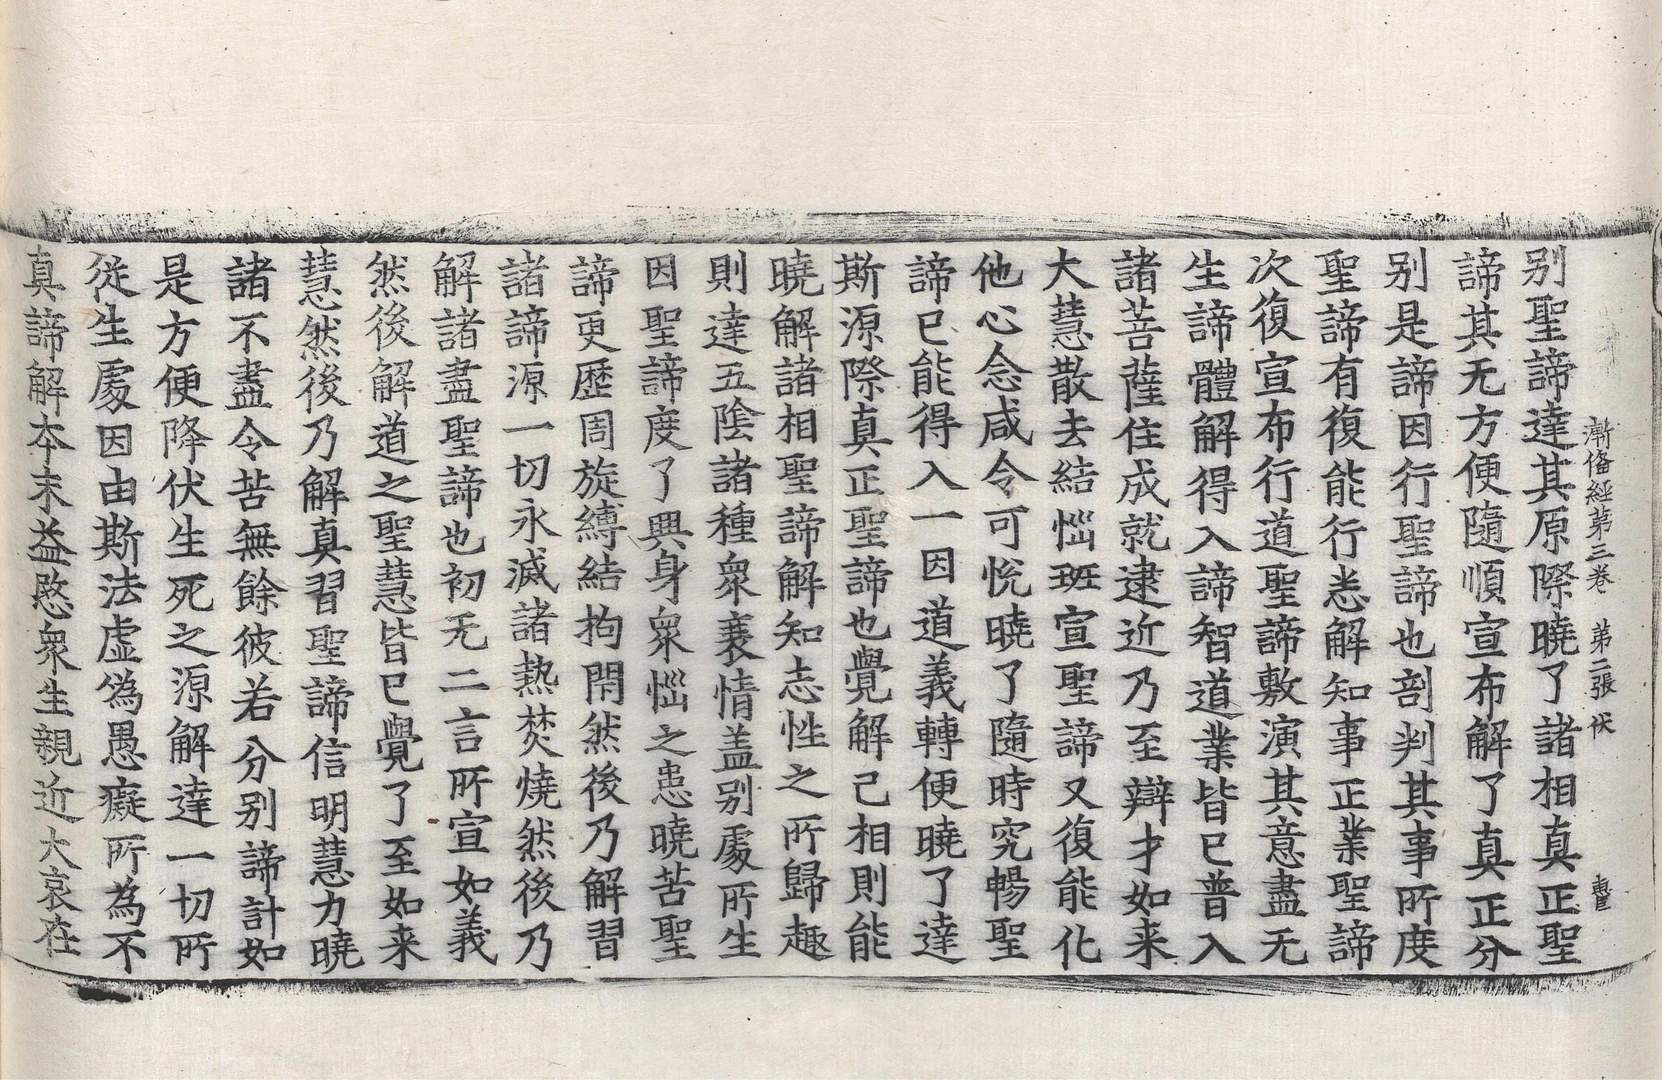 漸偹經第三卷　第二張　伏
别聖諦達其原際曉了諸相真正聖
諦其无方便隨順宣布解了真正分
别是諦因行聖諦也剖判其事所度
聖諦有復能行悉解知事正業聖諦
次復宣布行道聖諦敷演其意盡无
生諦體解得入諦智道業皆已普入
諸菩薩住成就逮近乃至辯才如来
大慧散去結惱班宣聖諦又復能化
他心念咸令可悅曉了隨時究暢聖
諦已能得入一因道義轉便曉了達
斯源際真正聖諦也覺解己相則能
曉解諸相聖諦解知志性之所歸趣
則達五陰諸種衆衰情盖别處所生
因聖諦度了興身衆惱之患曉苦聖
諦更歷周旋縛結拘閇然後乃解習
諸諦源一切永滅諸熱焚燒然後乃
解諸盡聖諦也初无二言所宣如義
然後解道之聖慧皆已覺了至如来
慧然後乃解真習聖諦信明慧力曉
諸不盡令苦無餘彼若分别諦計如
是方便降伏生死之源解達一切所
從生處因由斯法虛偽愚癡所為不
真諦解本末益愍衆生親近大哀在